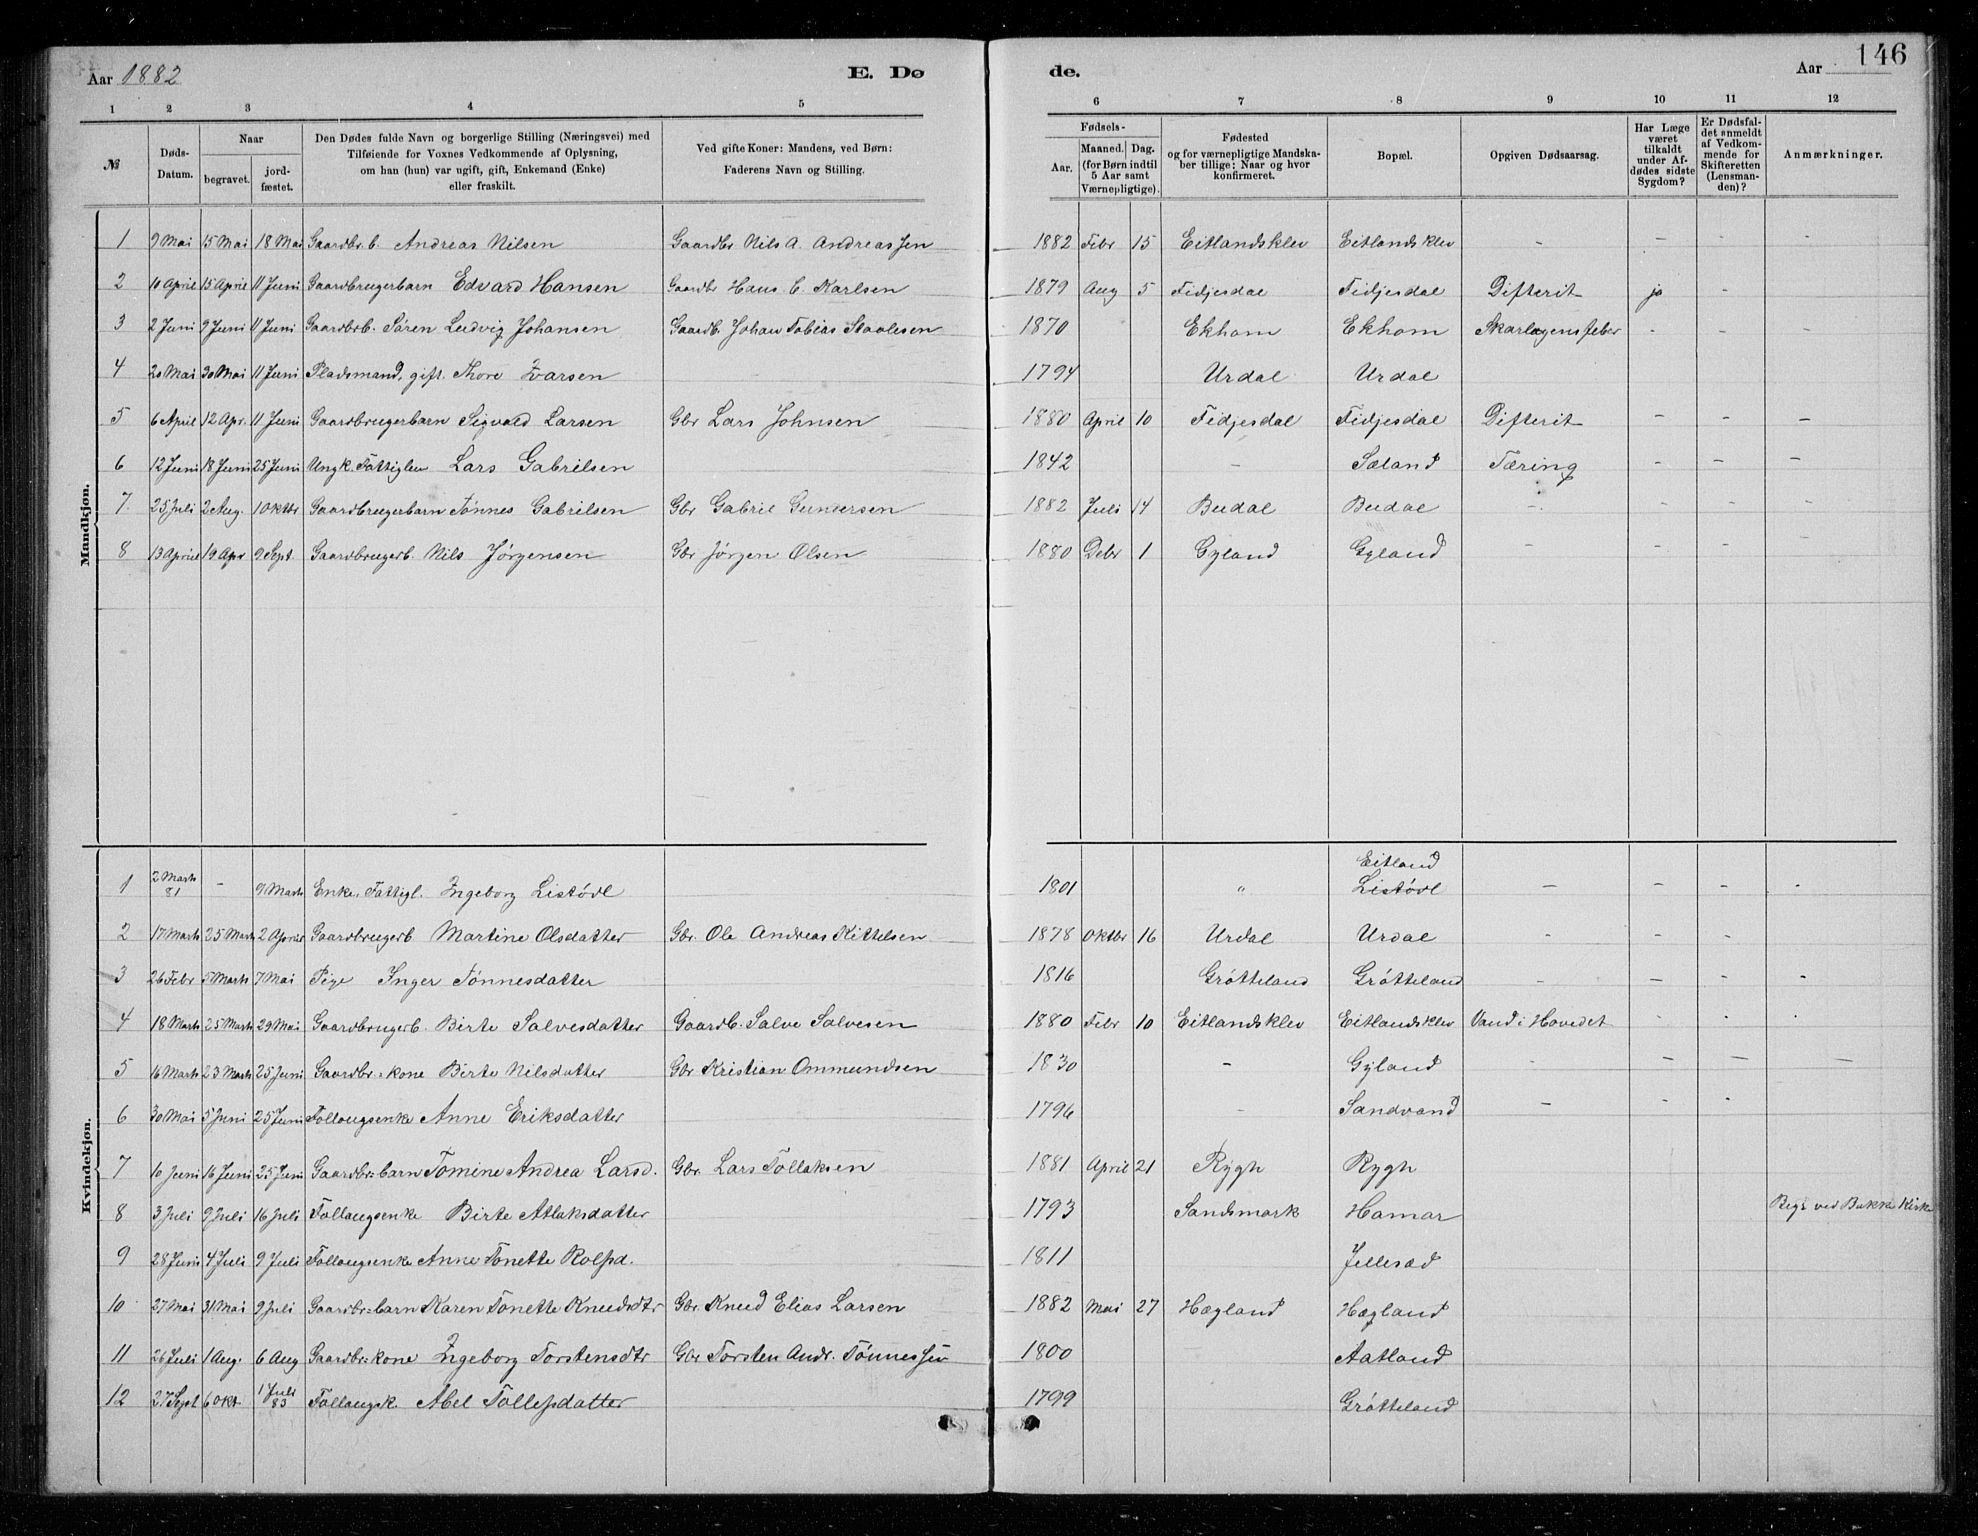 Aar 1882 E. Dø de. Aar 146
1 2 3 4 5 6 7 8 9 10 11 12
№ Døds-Datum. Naar begravet. jord-fæstet. Den Dødes fulde Navn og borgerlige Stilling (Næringsvei) med Tilføiende for Voxnes Vedkommende af Oplysning, om han (hun) var ugift, gift, Enkemand (Enke) eller fraskilt. Ved gifte Koner: Mandens, ved Børn: Faderens Navn og Stilling. Fødsels- Aar. Maaned. Dag. (for Børn indtil 5 Aar samt Værnepligtige). Fødested og for værnepligtige Mandskaber tillige: Naar og hvor konfirmeret. Bopæl. Opgiven Dødsaarsag. Har Læge været tilkaldt under Afdødes sidste Sygdom? Er Dødsfaldet anmeldt af Vedkommende for Skifteretten (Lensmanden)? Anmærkninger.
Mandkjøn.
1 9 Mai 15 Mai 18 Mai Gaardbr. b. Andreas Nilsen Gaardbr Nils A. Andreassen 1882 Febr 15 Eitlandsklev Eitlandsklev - - - -
2 10 April 15 April 11 Juni Gaardbrugerbarn Edvard Hansen Gaardbr Hans C. Karlsen 1879 Aug 5 Fidjesdal Fidjesdal Difterit ja - -
3 2 Juni 9 Juni 11 Juni Gaardbrb. Søren Ludvig Johansen Gaardb. Johan Tobias Staalesen 1870 Ekhom Ekhom Skarlagensfeber - - -
4 20 Mai 30 Mai 11 Juni Pladsmand, gift. Thore Ivarsen 1794 Urdal Urdal
5 6 April 12 Apr. 11 Juni Gaardbrugerbarn Sigvald Larsen Gbr Lars Johnsen 1880 April 10 Fidjesdal Fidjesdal Difterit - - -
6 12 Juni 18 Juni 25 Juni Ungk. Fattiglem Lars Gabrilsen 1842 - Sæland Tæring - - -
7 25 Juli 2 Aug. 1 Oktbr Gaardbrugerbarn Tønnes Gabrilsen Gbr Gabriel Gundersen 1882 Juli 14 Budal Budal - - - -
8 13 April 19 Apr 9 Sept. Gaardbrugerb. Nils Jørgensen Gbr Jørgen Olsen 1880 Debr 1 Gyland Gyland - - - -
Kvindekjøn.
1 2 Marts 81 - 9 Marts Enke, Fattigl. Ingeborg Listøvl 1801 " Eitland Listøvl - - - -
2 17 Marts 25 Marts 2 April Gaardbrugerb Martine Olsdatter Gbr. Ole Andreas Kittelsen 1878 Oktbr 16 Urdal Urdal - - - -
3 26 Febr 5 Marts 7 Mai Pige Inger Tønnesdatter 1816 Grøtteland Grøtteland - - - -
4 18 Marts 25 Marts 29 Mai Gaardbrugerb. Birte Salvesdatter Gaardb. Salve Salvesen 1880 Febr 10 Eitlandsklev Eitlandsklev Vand i Hovedet - - -
5 16 Marts 23 Marts 25 Juni Gaardbr:kone Birte Nilsdatter Gbr Kristian Ommundsen 1830 - Gyland - - - -
6 30 Mai 5 Juni 25 Juni Føllaugsenke Anne Eriksdatter 1796 - Sandvand - - -
7 10 Juni 16 Juni 25 Juni Gaardbr:barn Tomine Andrea Larsd. Gbr. Lars Tollaksen 1881 April 21 Rygh Rygh
8 3 Juli 9 Juli 16 Juli Føllaugsenke Birte Atlaksdatter 1793 Sandsmark Hamar Begr ved Bakke Kirke
9 28 Juni 4 Juli 9 Juli Føllaugsenke Anne Tonette Rolfsd. 1811 Jellesad
10 27 Mai 31 Mai 9 Juli Gaardbr:barn Karen Tonette Knudsdtr Gbr. Knud Elias Larsen 1882 Mai 27 Hægland Hægland
11 26 Juli 1 Aug. 6 Aug Gaardbr:kone Ingeborg Torstensdtr Gbr Torsten Andr. Tønnessen 1800 Aatland
12 27 Sept 6 Okt. 1 Juli 83 Føllaugsk. Abel Tollefsdatter 1799 Grøtteland